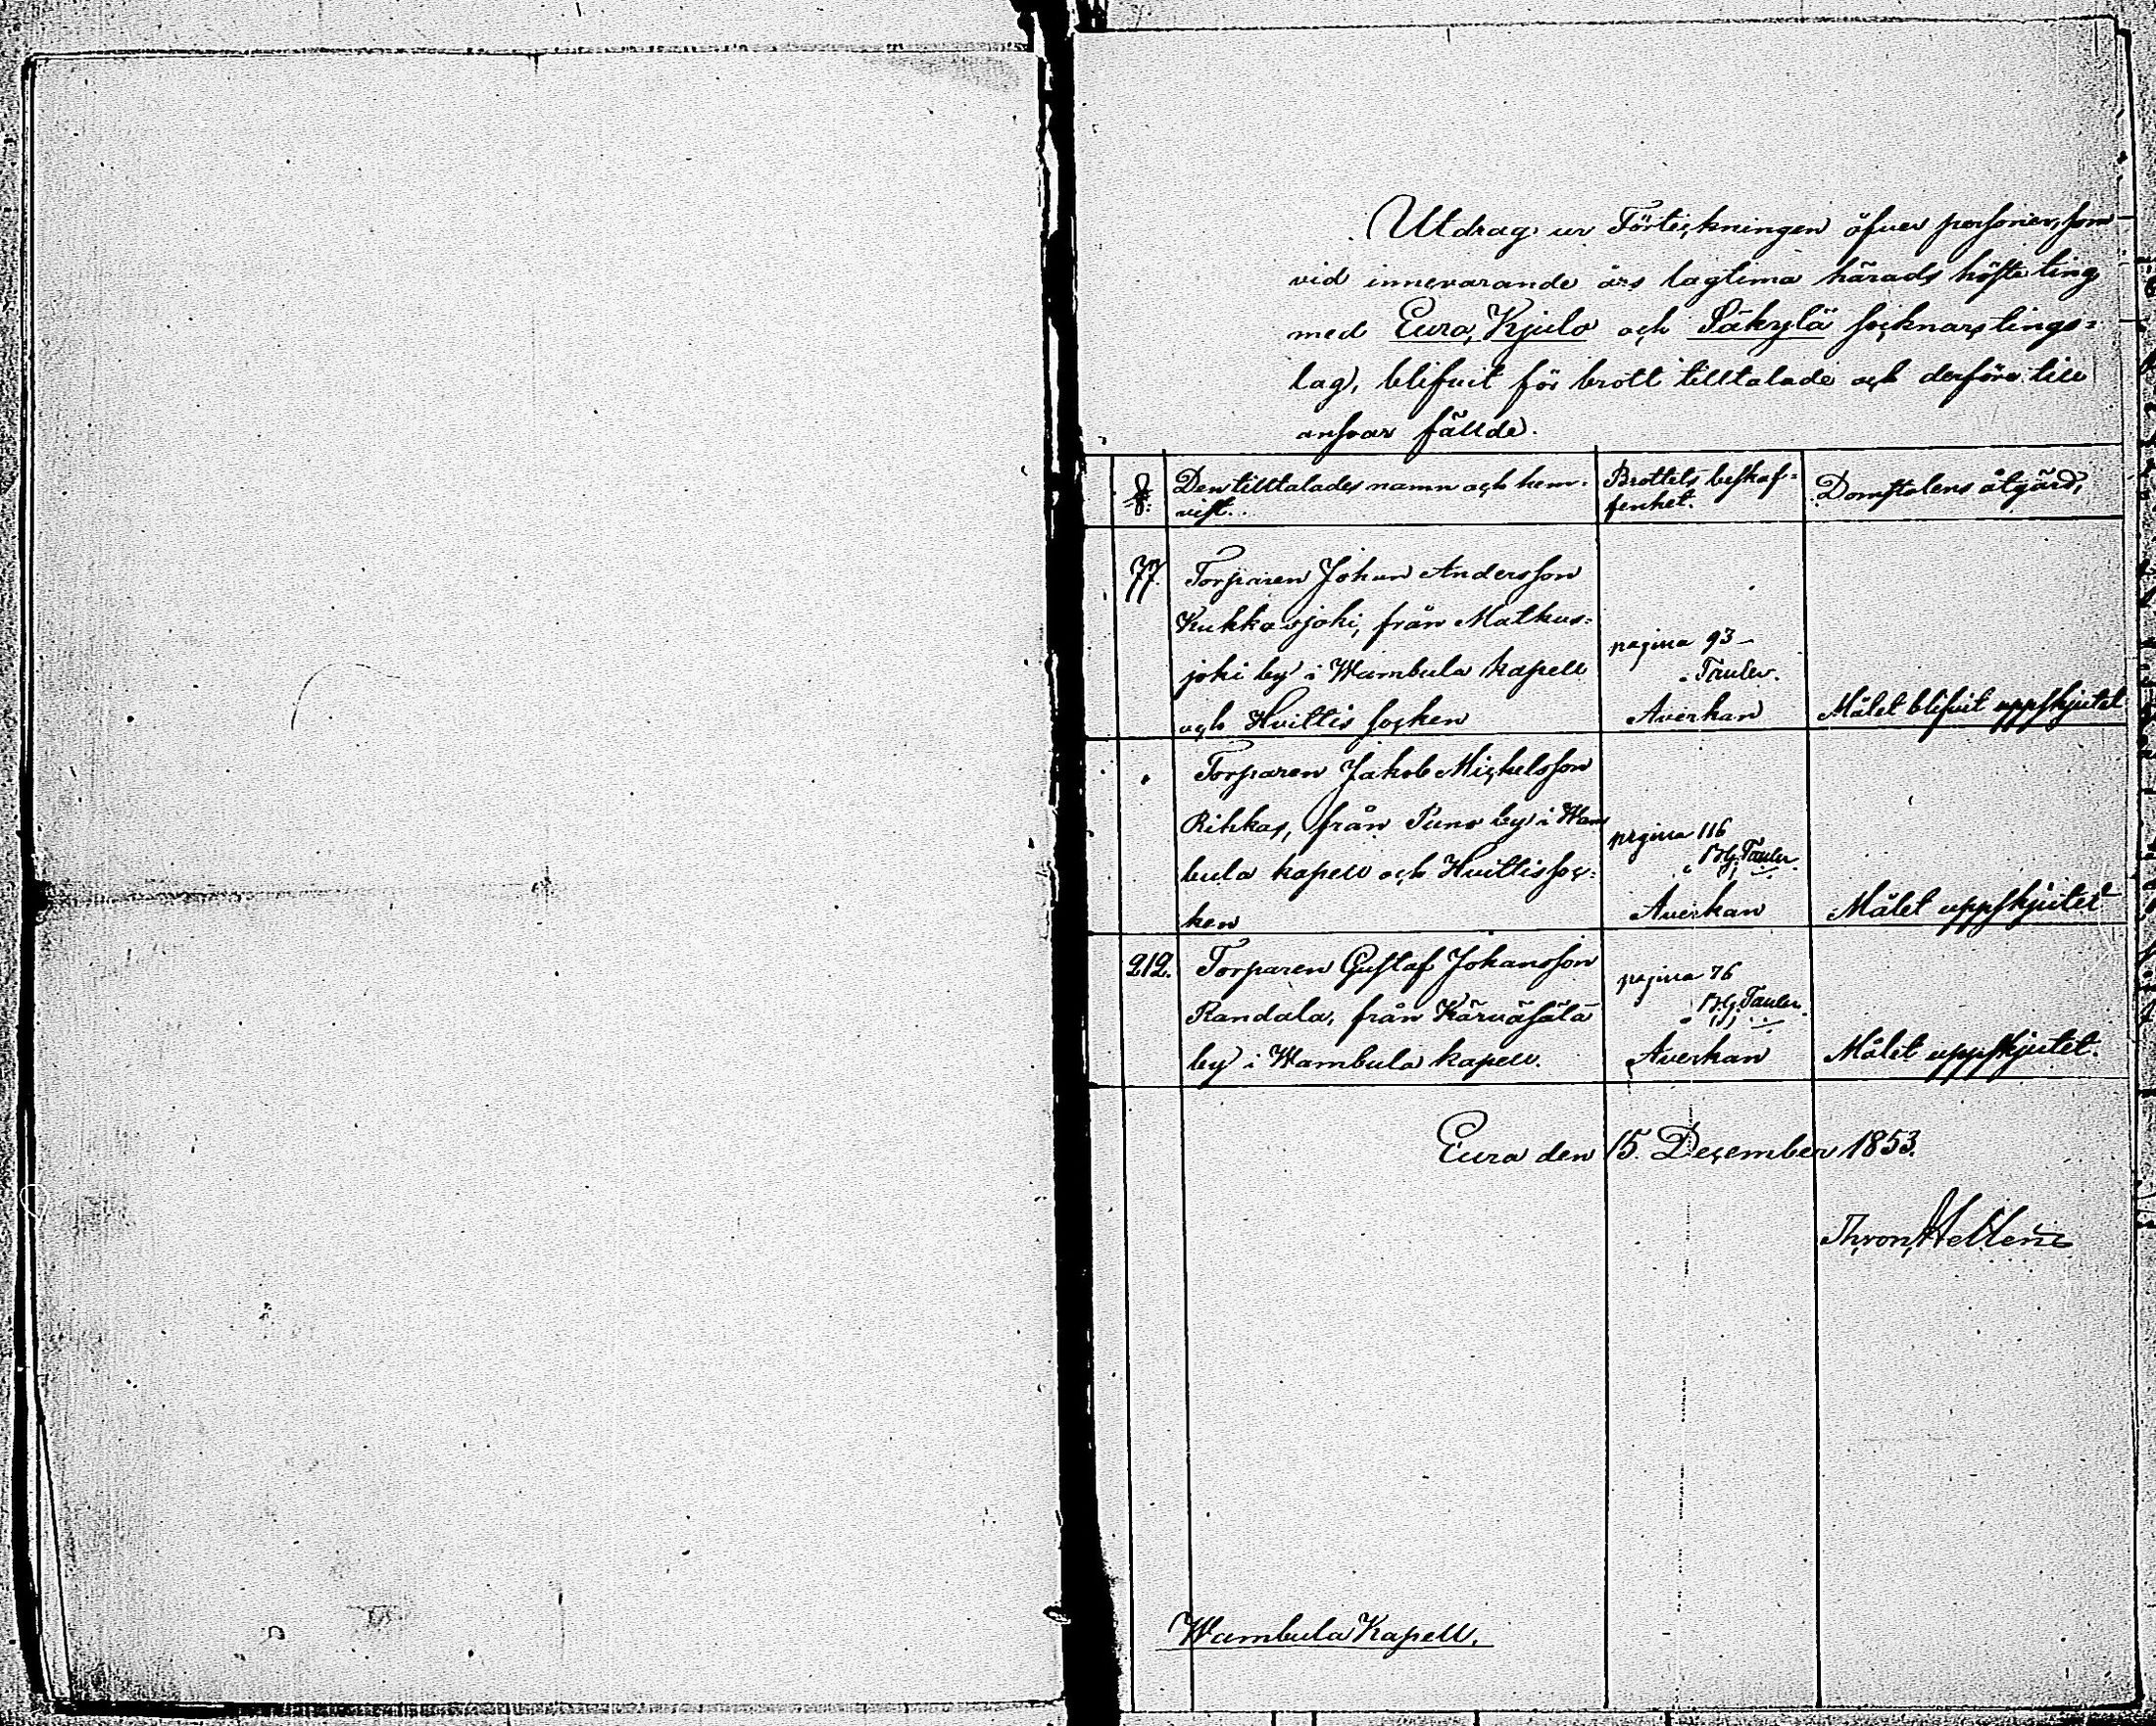 Utdrag ur Förteckningen öfver personer, som
vid innevarande års lagtima härads höste ting
med Eura, Kjulo och Säkylä socknars tings=
lag, blifvit för brott tilltalade och derföre till
ansvar fällde.
§. Den tilltalades namn och hem-
vist.
Brottets beskaf-
fenhet.
Domstolens åtgärd,
77. Torparen Johan Andersson
Kukkasjoki, från Matkus-
joki by i Wambula kapell
och Hvittis socken
pagina 93
Åverkan
Målet blifvit uppskjutet
Torparen Jakob Michelsson
Rihkas, från Suno by i Wam
bula kapell och Hvittis soc-
ken
pagina 116
Åverkan
Målet uppskjutet
212. Torparen Gustaf Johansson
Randala, från Kärväsälä
by i Wambula kapell.
pagina 76
Åverkan
Målet uppskjutet.
Eura den 15. December 1853.
Wambula Kapell.